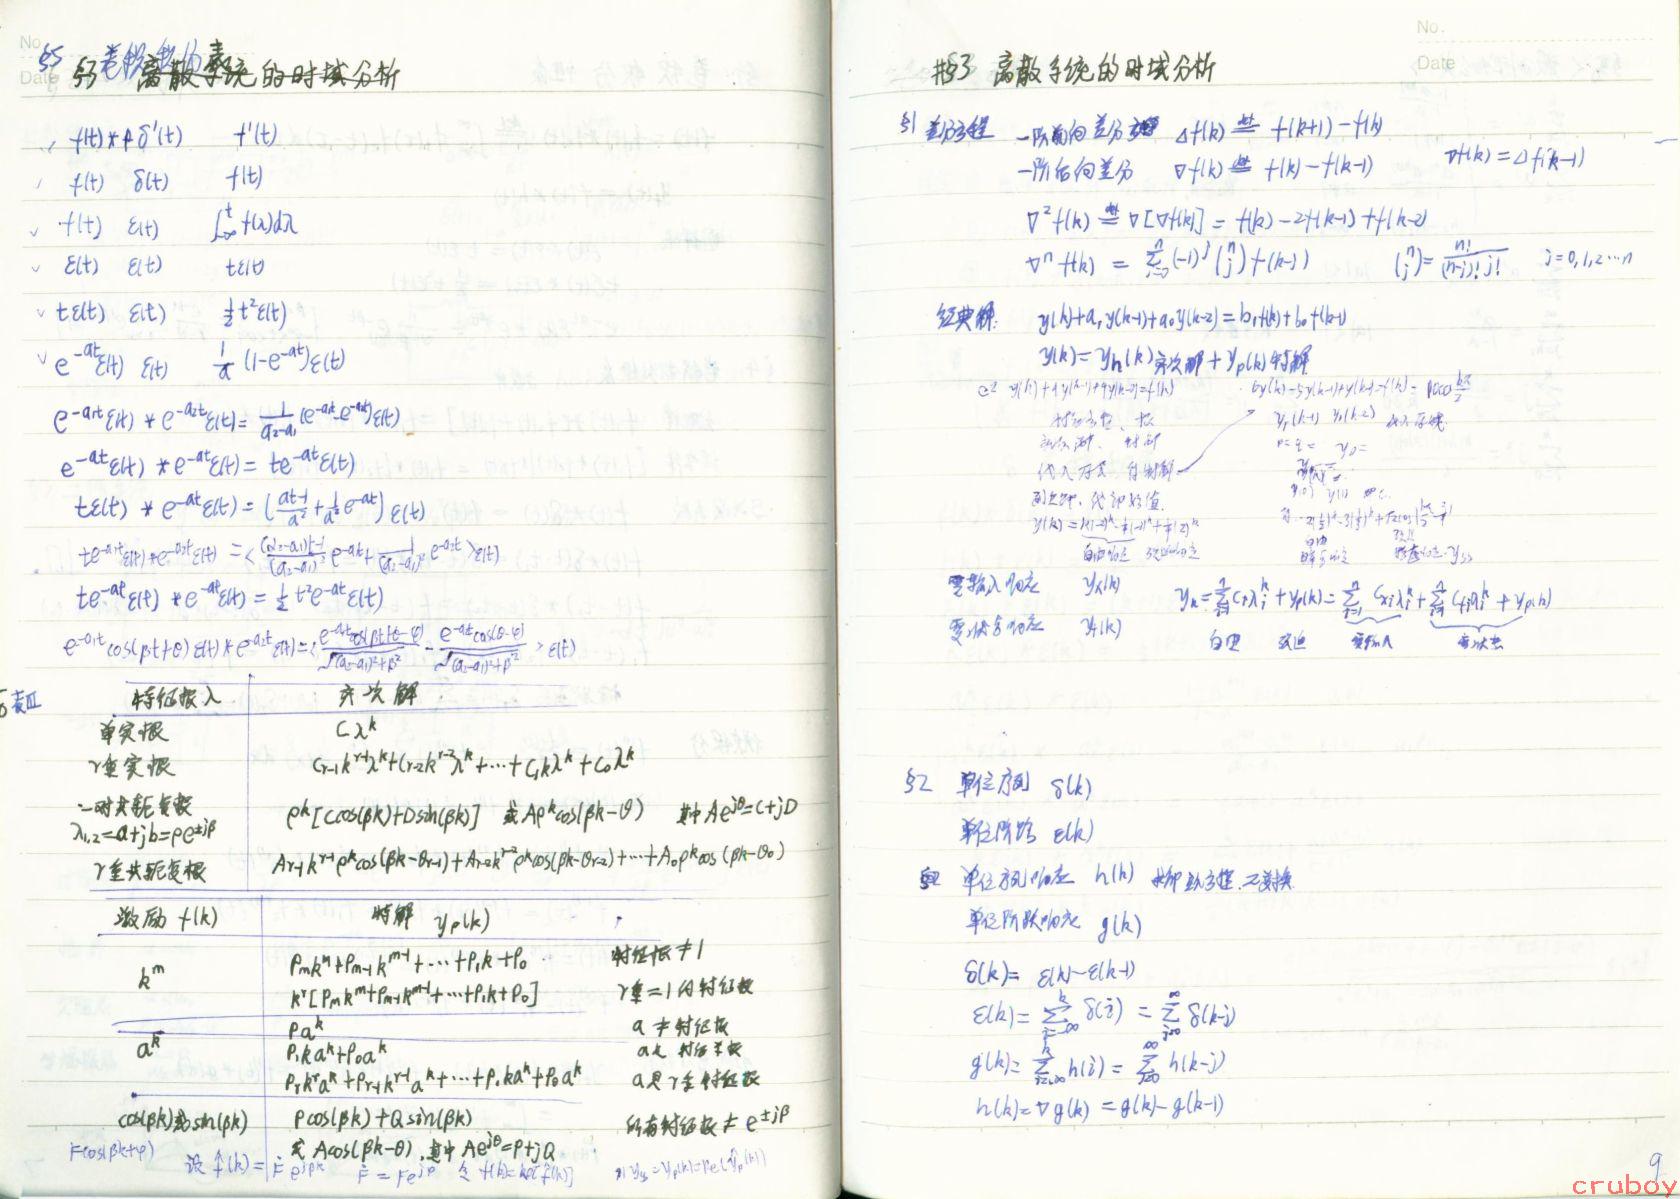 No.
Date
§5 卷积积分表
§3 离散系统的时域分析
f(t)*δ'(t) f'(t)
f(t) δ(t) f(t)
f(t) ε(t) ∫_{-∞}^t f(λ)dλ
ε(t) ε(t) tε(t)
tε(t) ε(t) ½t²ε(t)
e^{-at}ε(t) ε(t) 1/a (1-e^{-at})ε(t)
e^{-a₁t}ε(t) * e^{-a₂t}ε(t) = 1/(a₂-a₁) (e^{-a₁t}-e^{-a₂t})ε(t)
e^{-at}ε(t) * e^{-at}ε(t) = te^{-at}ε(t)
tε(t) * e^{-at}ε(t) = ((at-1)/a² + 1/a² e^{-at})ε(t)
te^{-a₁t}ε(t) * e^{-a₂t}ε(t) = <((a₂-a₁)t-1)/(a₂-a₁)² e^{-a₁t} + 1/(a₂-a₁)² e^{-a₂t}>ε(t)
te^{-at}ε(t) * e^{-at}ε(t) = ½t²e^{-at}ε(t)
e^{-a₁t}cos(βt+θ)ε(t) * e^{-a₂t}ε(t) = <e^{-a₁t}cos(βt+θ-φ)/√((a₂-a₁)²+β²) - e^{-a₂t}cos(θ-φ)/√((a₂-a₁)²+β²)> ε(t)
表III
特征根λ 齐次解
单实根 Cλ^k
r重实根 C_{r-1}k^{r-1}λ^k + C_{r-2}k^{r-2}λ^k + ··· + C₁kλ^k + C₀λ^k
一对共轭复根
λ₁,₂=a+jb=ρe^{±jβ} ρ^k[Ccos(βk)+Dsin(βk)] 或 Aρ^kcos(βk-θ) 其中 Ae^{jθ}=C+jD
r重共轭复根 A_{r-1}k^{r-1}ρ^kcos(βk-θ_{r-1}) + A_{r-2}k^{r-2}ρ^kcos(βk-θ_{r-2}) + ··· + A₀ρ^kcos(βk-θ₀)
激励 f(k) 特解 y_p(k)
k^m P_mk^m+P_{m-1}k^{m-1}+···+P₁k+P₀ 特征根≠1
k^r[P_mk^m+P_{m-1}k^{m-1}+···+P₁k+P₀] r重=1的特征根
a^k Pa^k a≠特征根
P₁ka^k+P₀a^k a是特征单根
P_rk^ra^k+P_{r-1}k^{r-1}a^k+···+P₁ka^k+P₀a^k a是r重特征根
cos(βk)或sin(βk) Pcos(βk)+Qsin(βk) 所有特征根≠e^{±jβ}
或 Acos(βk-θ),其中 Ae^{jθ}=P+jQ
Fcos(βk+φ) 设 f(k)=Ḟe^{jβk} Ḟ=Fe^{jφ}
No.
Date
§3 离散系统的时域分析
§1 差分方程 一阶前向差分 Δf(k) def= f(k+1)-f(k)
一阶后向差分 ∇f(k) def= f(k)-f(k-1) ∇f(k)=Δf(k-1)
∇²f(k) def= ∇[∇f(k)] = f(k)-2f(k-1)+f(k-2)
∇ⁿf(k) = Σ_{j=0}^n (-1)^j (n j) f(k-j) (n j)=n!/((n-j)!j!) j=0,1,2···n
经典解: y(k)+a₁y(k-1)+a₀y(k-2)=b₁f(k)+b₀f(k-1)
y(k)=y_h(k)齐次解+y_p(k)特解
特征方程、根
齐次解、特解
自由响应 强迫响应
零输入响应 y_x(k) y_k=Σ_{i=1}^n C_iλ_i^k+y_p(k)=Σ_{i=1}^n C_{xi}λ_i^k+Σ_{i=1}^n C_{fi}λ_i^k+y_p(k)
零状态响应 y_f(k)
自由 强迫 零输入 零状态
§2 单位序列 δ(k)
单位阶跃 ε(k)
单位序列响应 h(k)
单位阶跃响应 g(k)
δ(k)= ε(k)-ε(k-1)
ε(k)=Σ_{i=-∞}^k δ(i) = Σ_{j=0}^∞ δ(k-j)
g(k)=Σ_{i=-∞}^k h(i) = Σ_{j=0}^∞ h(k-j)
h(k)=∇g(k) = g(k)-g(k-1)
9
cruboy